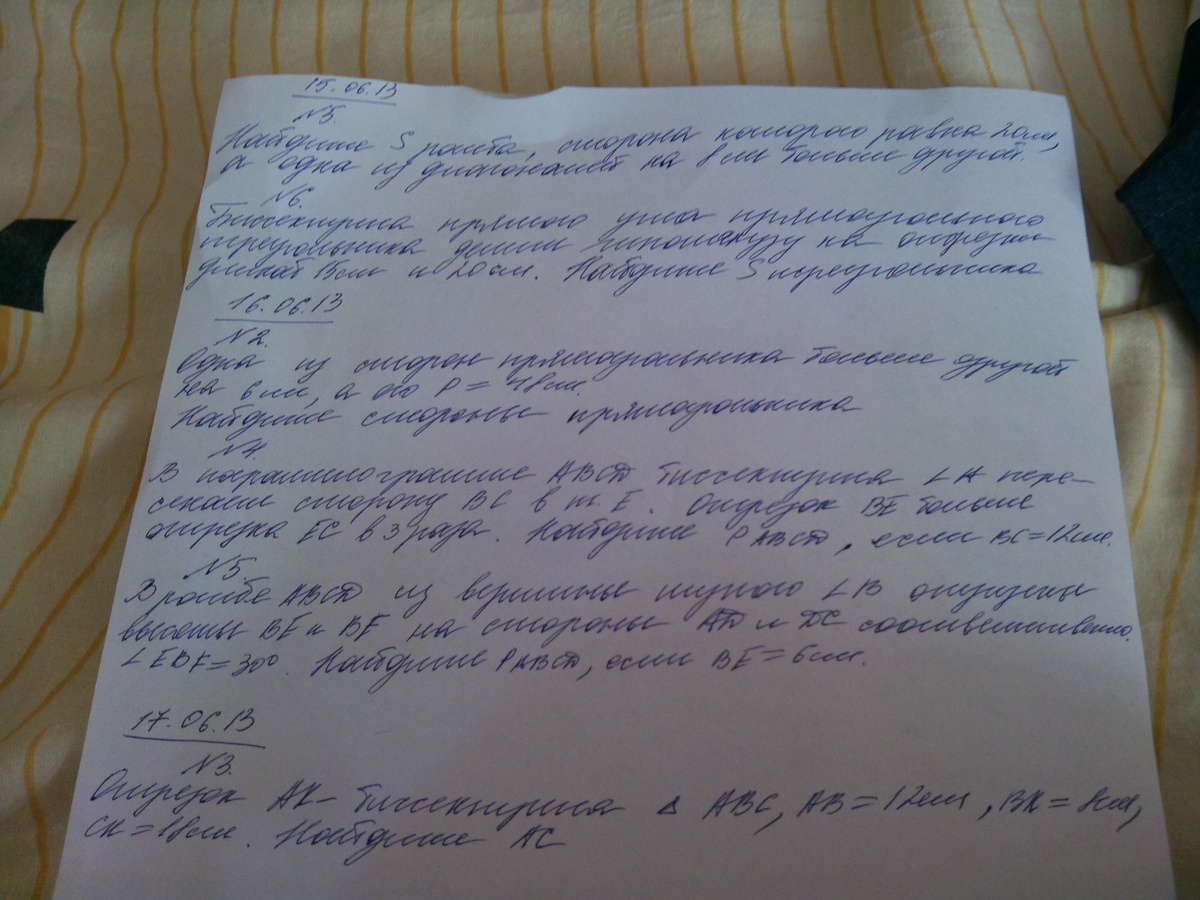 15.06.13
№5
Найдите S ромба, сторона которого равна 20см,
а одна из диагоналей на 8 см больше другой.
№6.
Биссектриса прямого угла прямоугольного
треугольника делит гипотенузу на отрезки
длиной 15см и 20см. Найдите S треугольника
16.06.13
№2.
Одна из сторон прямоугольника больше другой
на 6см, а его P = 48см.
Найдите стороны прямоугольника
№4.
В параллелограмме ABCD биссектриса ∠A пере-
секает сторону BC в т. E. Отрезок BE больше
отрезка EC в 3 раза. Найдите P ABCD, если BC=12см.
№5
В ромбе ABCD из вершины тупого ∠B опущены
высоты BE и BF на стороны AD и DC соответственно.
∠EBF=30°. Найдите P ABCD, если BE=6см.
17.06.13
№3.
Отрезок AK- биссектриса Δ ABC, AB=12см, BK=8см,
CK=18см. Найдите AC